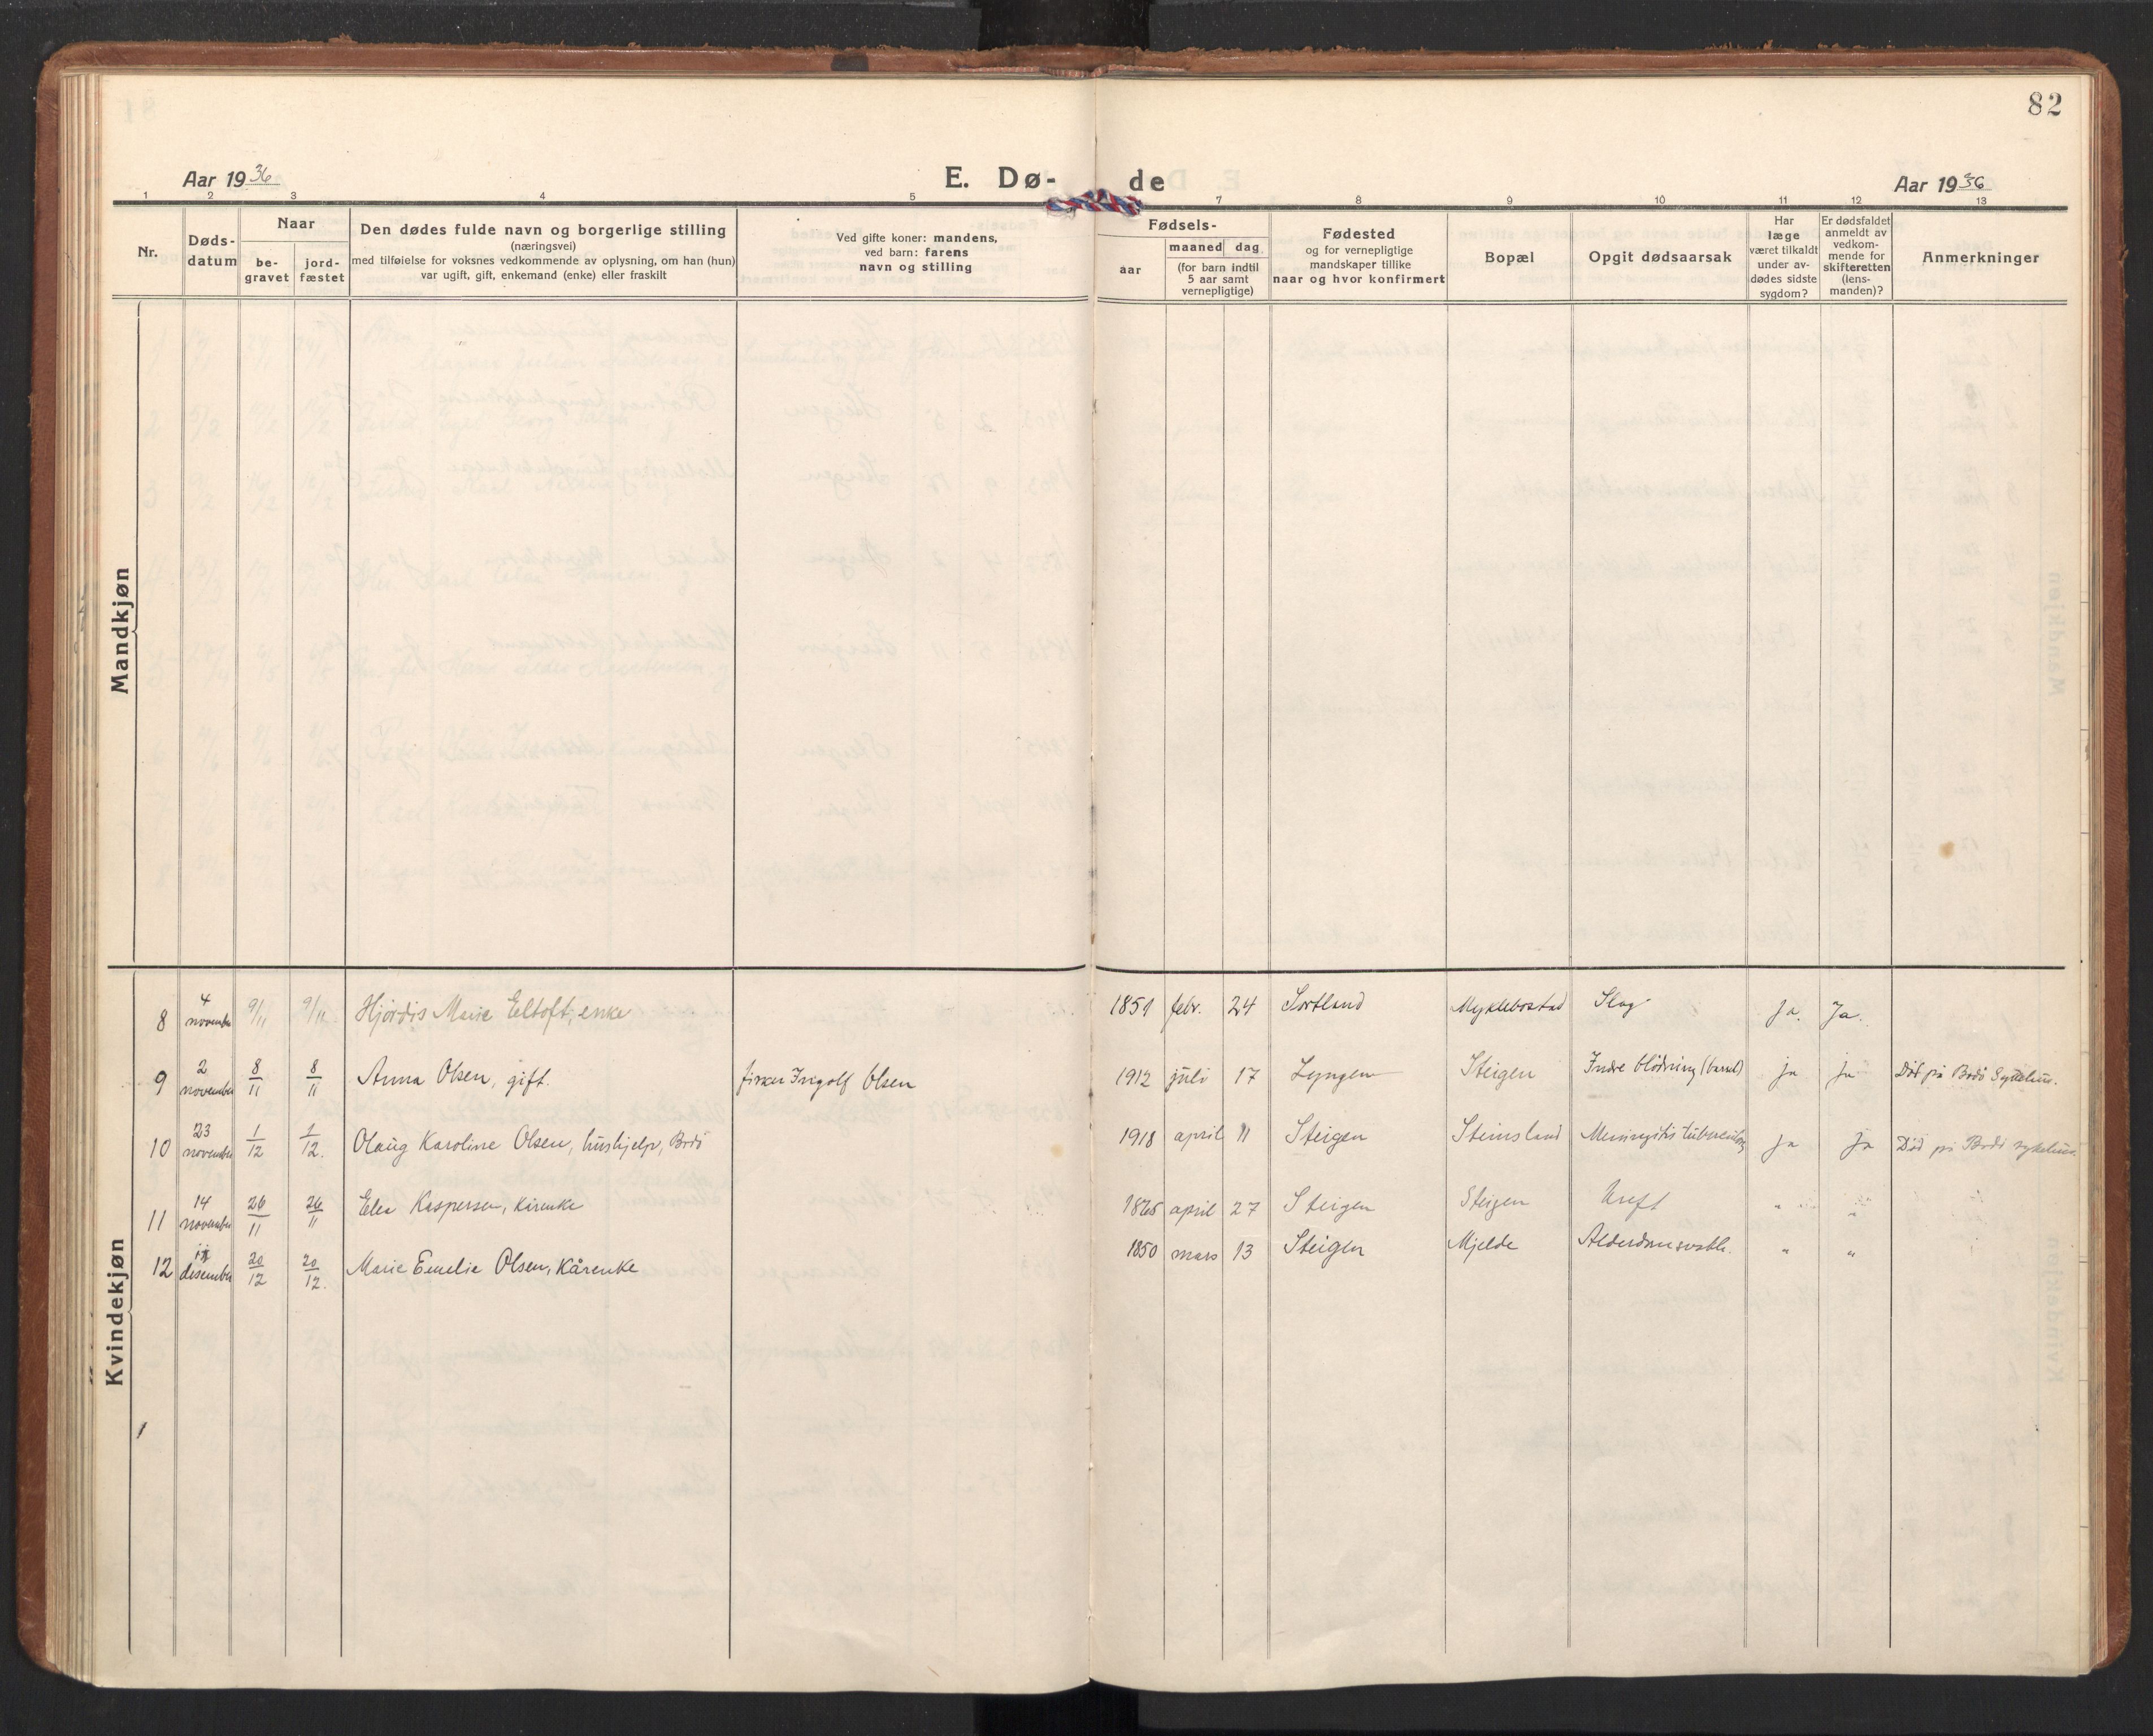 82
Aar 1936
E. Dø-
de
Aar 1936
1 2 3 4 5 7 8 9 10 11 12 13
Nr.
Døds-
datum
Naar
be-
gravet
jord-
fæstet
Den dødes fulde navn og borgerlige stilling
(næringsvei)
med tilføielse for voksnes vedkommende av oplysning, om han (hun)
var ugift, gift, enkemand (enke) eller fraskilt
Ved gifte koner: mandens,
ved barn: farens
navn og stilling
Fødsels-
aar
maaned dag
(for barn indtil
5 aar samt
vernepligtige)
Fødested
og for vernepligtige
mandskaper tillike
naar og hvor konfirmert
Bopæl
Opgit dødsaarsak
Har
læge
været tilkaldt
under av-
dødes sidste
sygdom?
Er dødsfaldet
anmeldt av
vedkom-
mende for
skifteretten
(lens-
manden)?
Anmerkninger
Mandkjøn
Kvindekjøn
8 4 november 9/11 9/11 Hjørdis Marie Eltoft, enke 1851 febr. 24 Sortland Myklebostad Slag Ja. Ja.
9 2 november 8/11 8/11 Anna Olsen, gift. fisker Ingolf Olsen 1912 juli 17 Lyngen Steigen Indre blødning (barsel) ja ja Død på Bodø Sykehus.
10 23 november 1/12 1/12. Olaug Karoline Olsen, hushjelp, Bodø 1918 april 11 Steigen Steinsland Meningitis tuberculosa ja ja Død på Bodø sykehus.
11 14 november 26/11 26/11 Elea Kaspersen, kårenke 1865 april 27 Steigen Steigen Kreft " "
12 desember 20/12 20/12. Marie Emelie Olsen, Kårenke 1850 mars 13 Steigen Mjelde " "